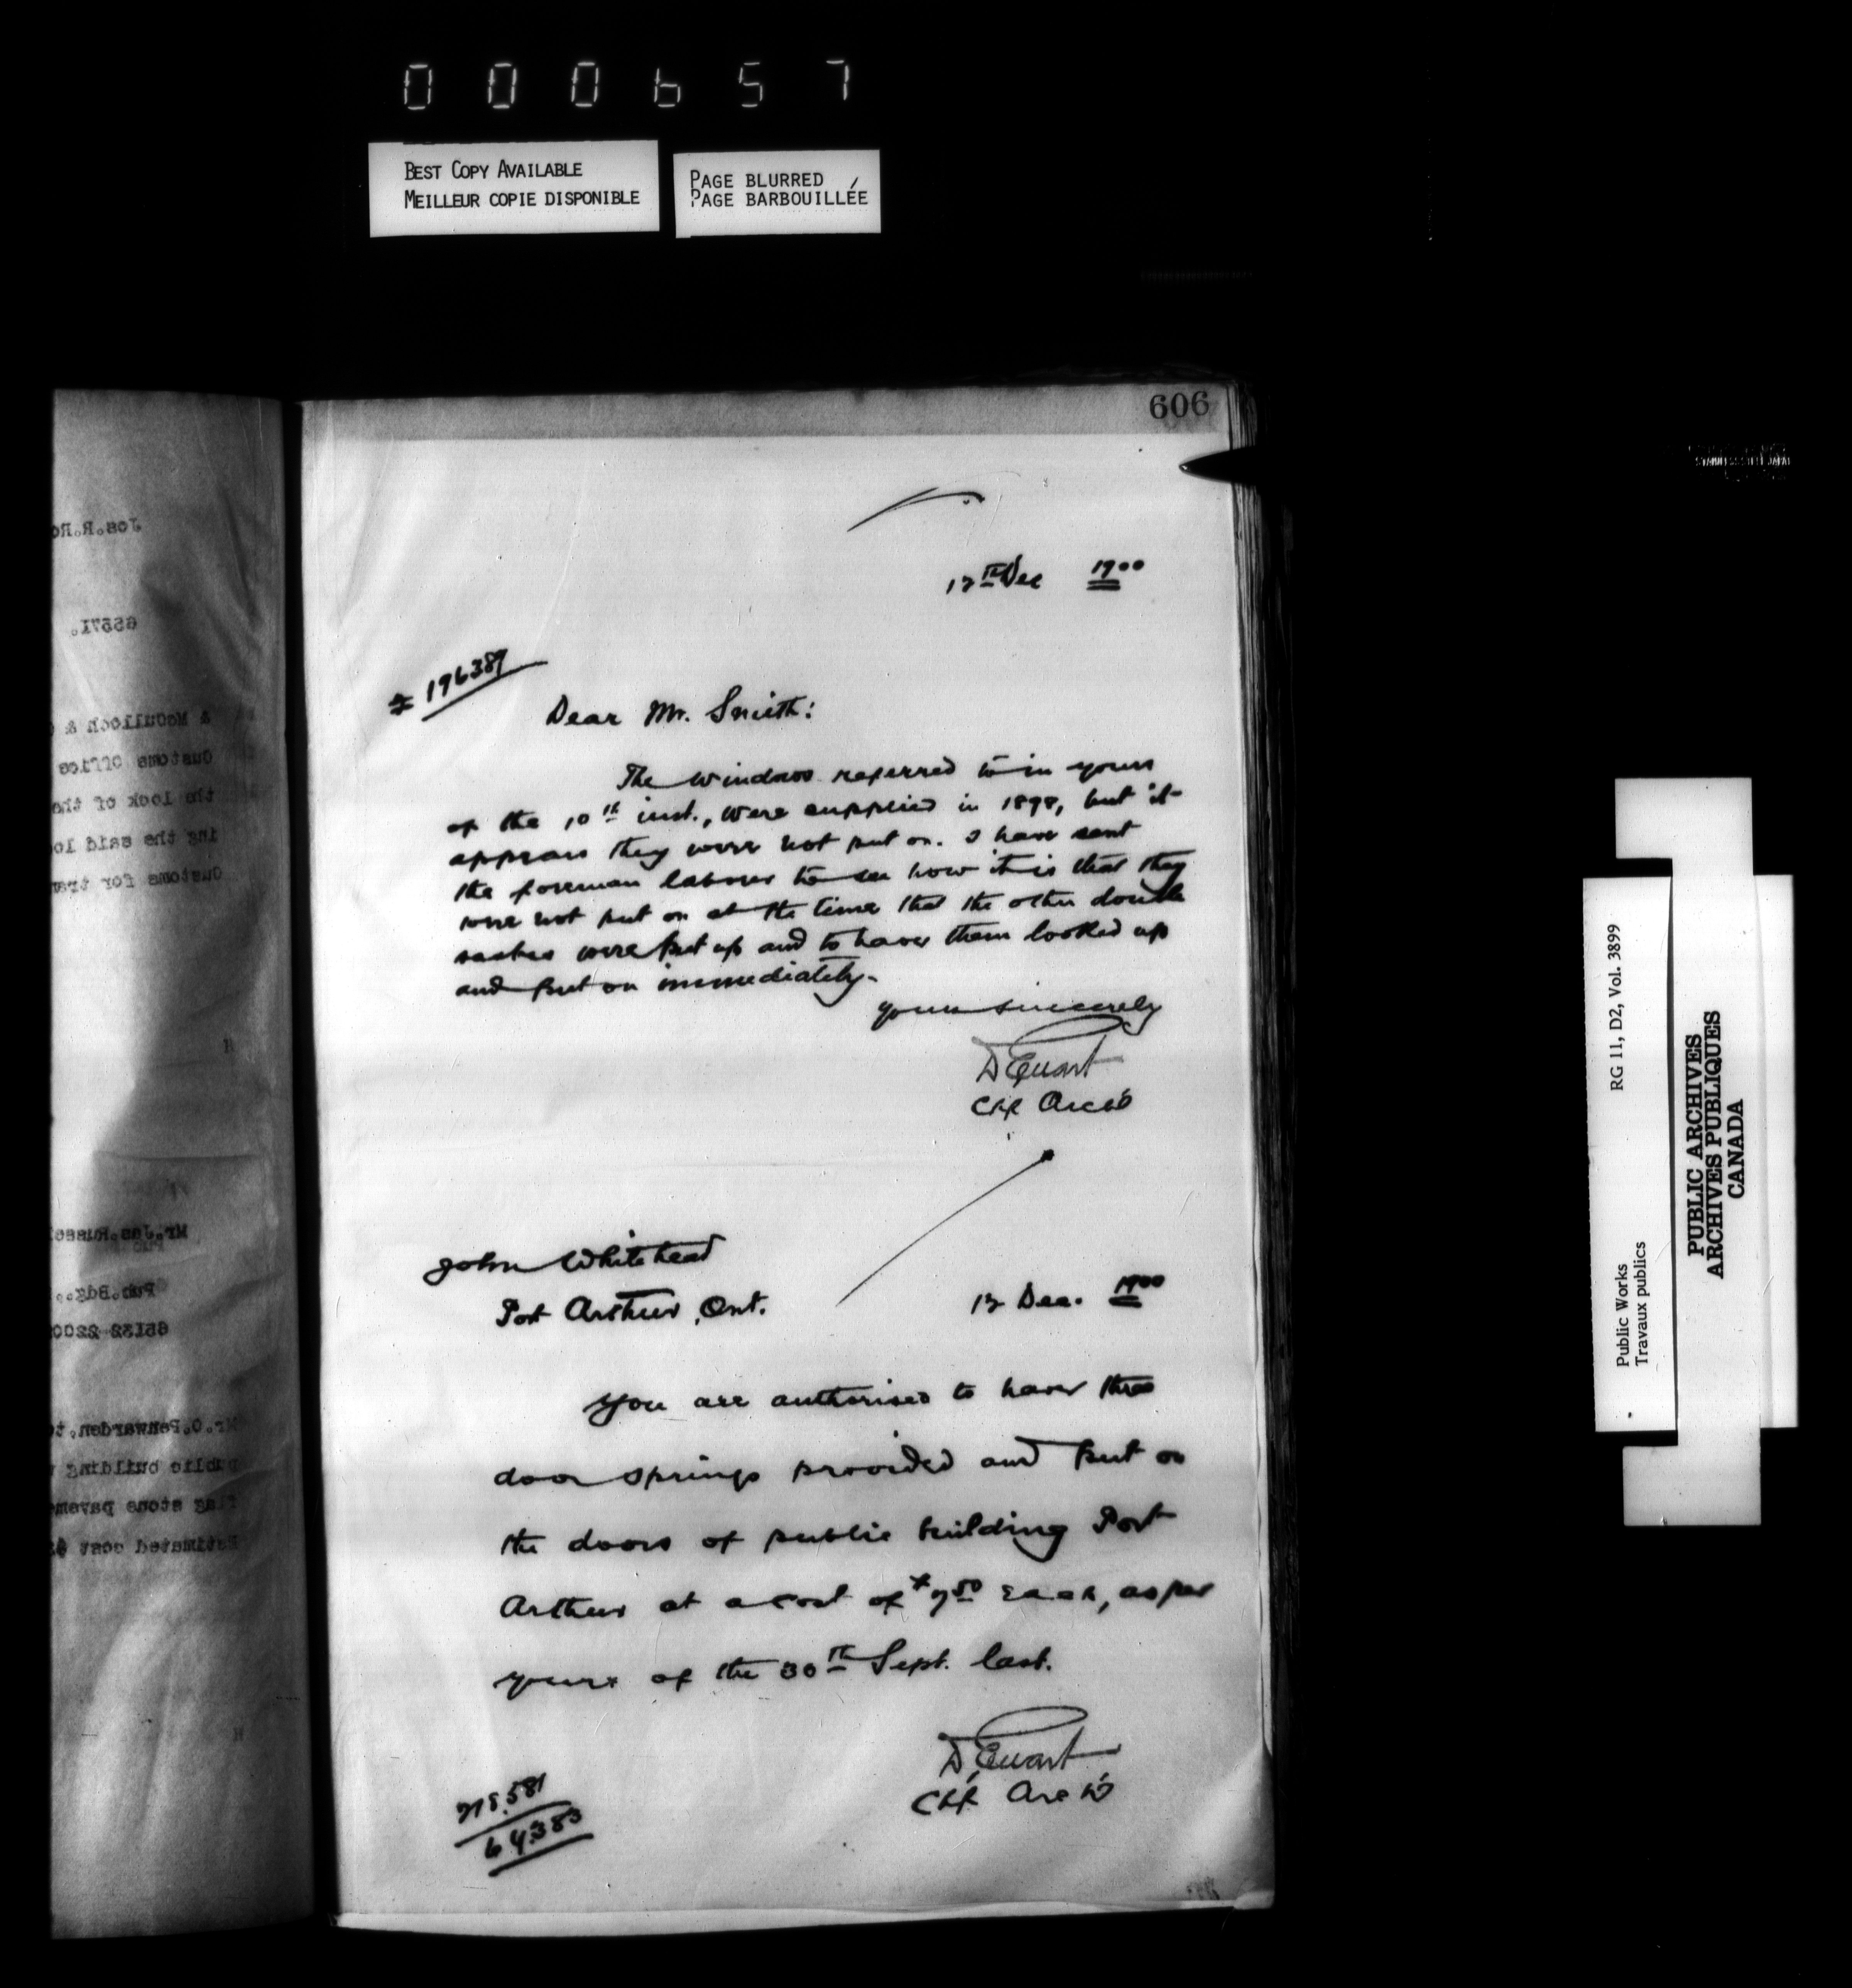 000657
BEST COPY AVAILABLE
MEILLEUR COPIE DISPONIBLE
PAGE BLURRED
PAGE BARBOUILLÉE
606
12th Dec 1900
# 196389
Dear Mr. Smith:
The windows referred to in yours
of the 10th inst., were supplied in 1898, but it
appears they were not put on. I have sent
the foreman labourer to see how it is that they
were not put on at the time that the other double
sashes were put up and to have them looked up
and put on immediately.
Yours sincerely
D Ewart
Chf Arch't
John Whitehead
Port Arthur, Ont.
12 Dec. 1900
You are authorised to have three
door springs provided and put on
the doors of public building Port
Arthur at a cost of $7.50 each, as per
yours of the 30th Sept. last.
D Ewart
Chf Arch't
218.581
64383
Jos.R.Ro
65571.
& McCulloch &
Customs Office
the lock of the
ing the said lo
Customs for tran
H
Mr.Jas.Russel
Pub.Bdg.
65132 2200
Mr.O.Penwarden,to
public building
flag stone paveme
Estimated cost $
H
RG 11, D2, Vol. 3899
Public Works
Travaux publics
PUBLIC ARCHIVES
ARCHIVES PUBLIQUES
CANADA